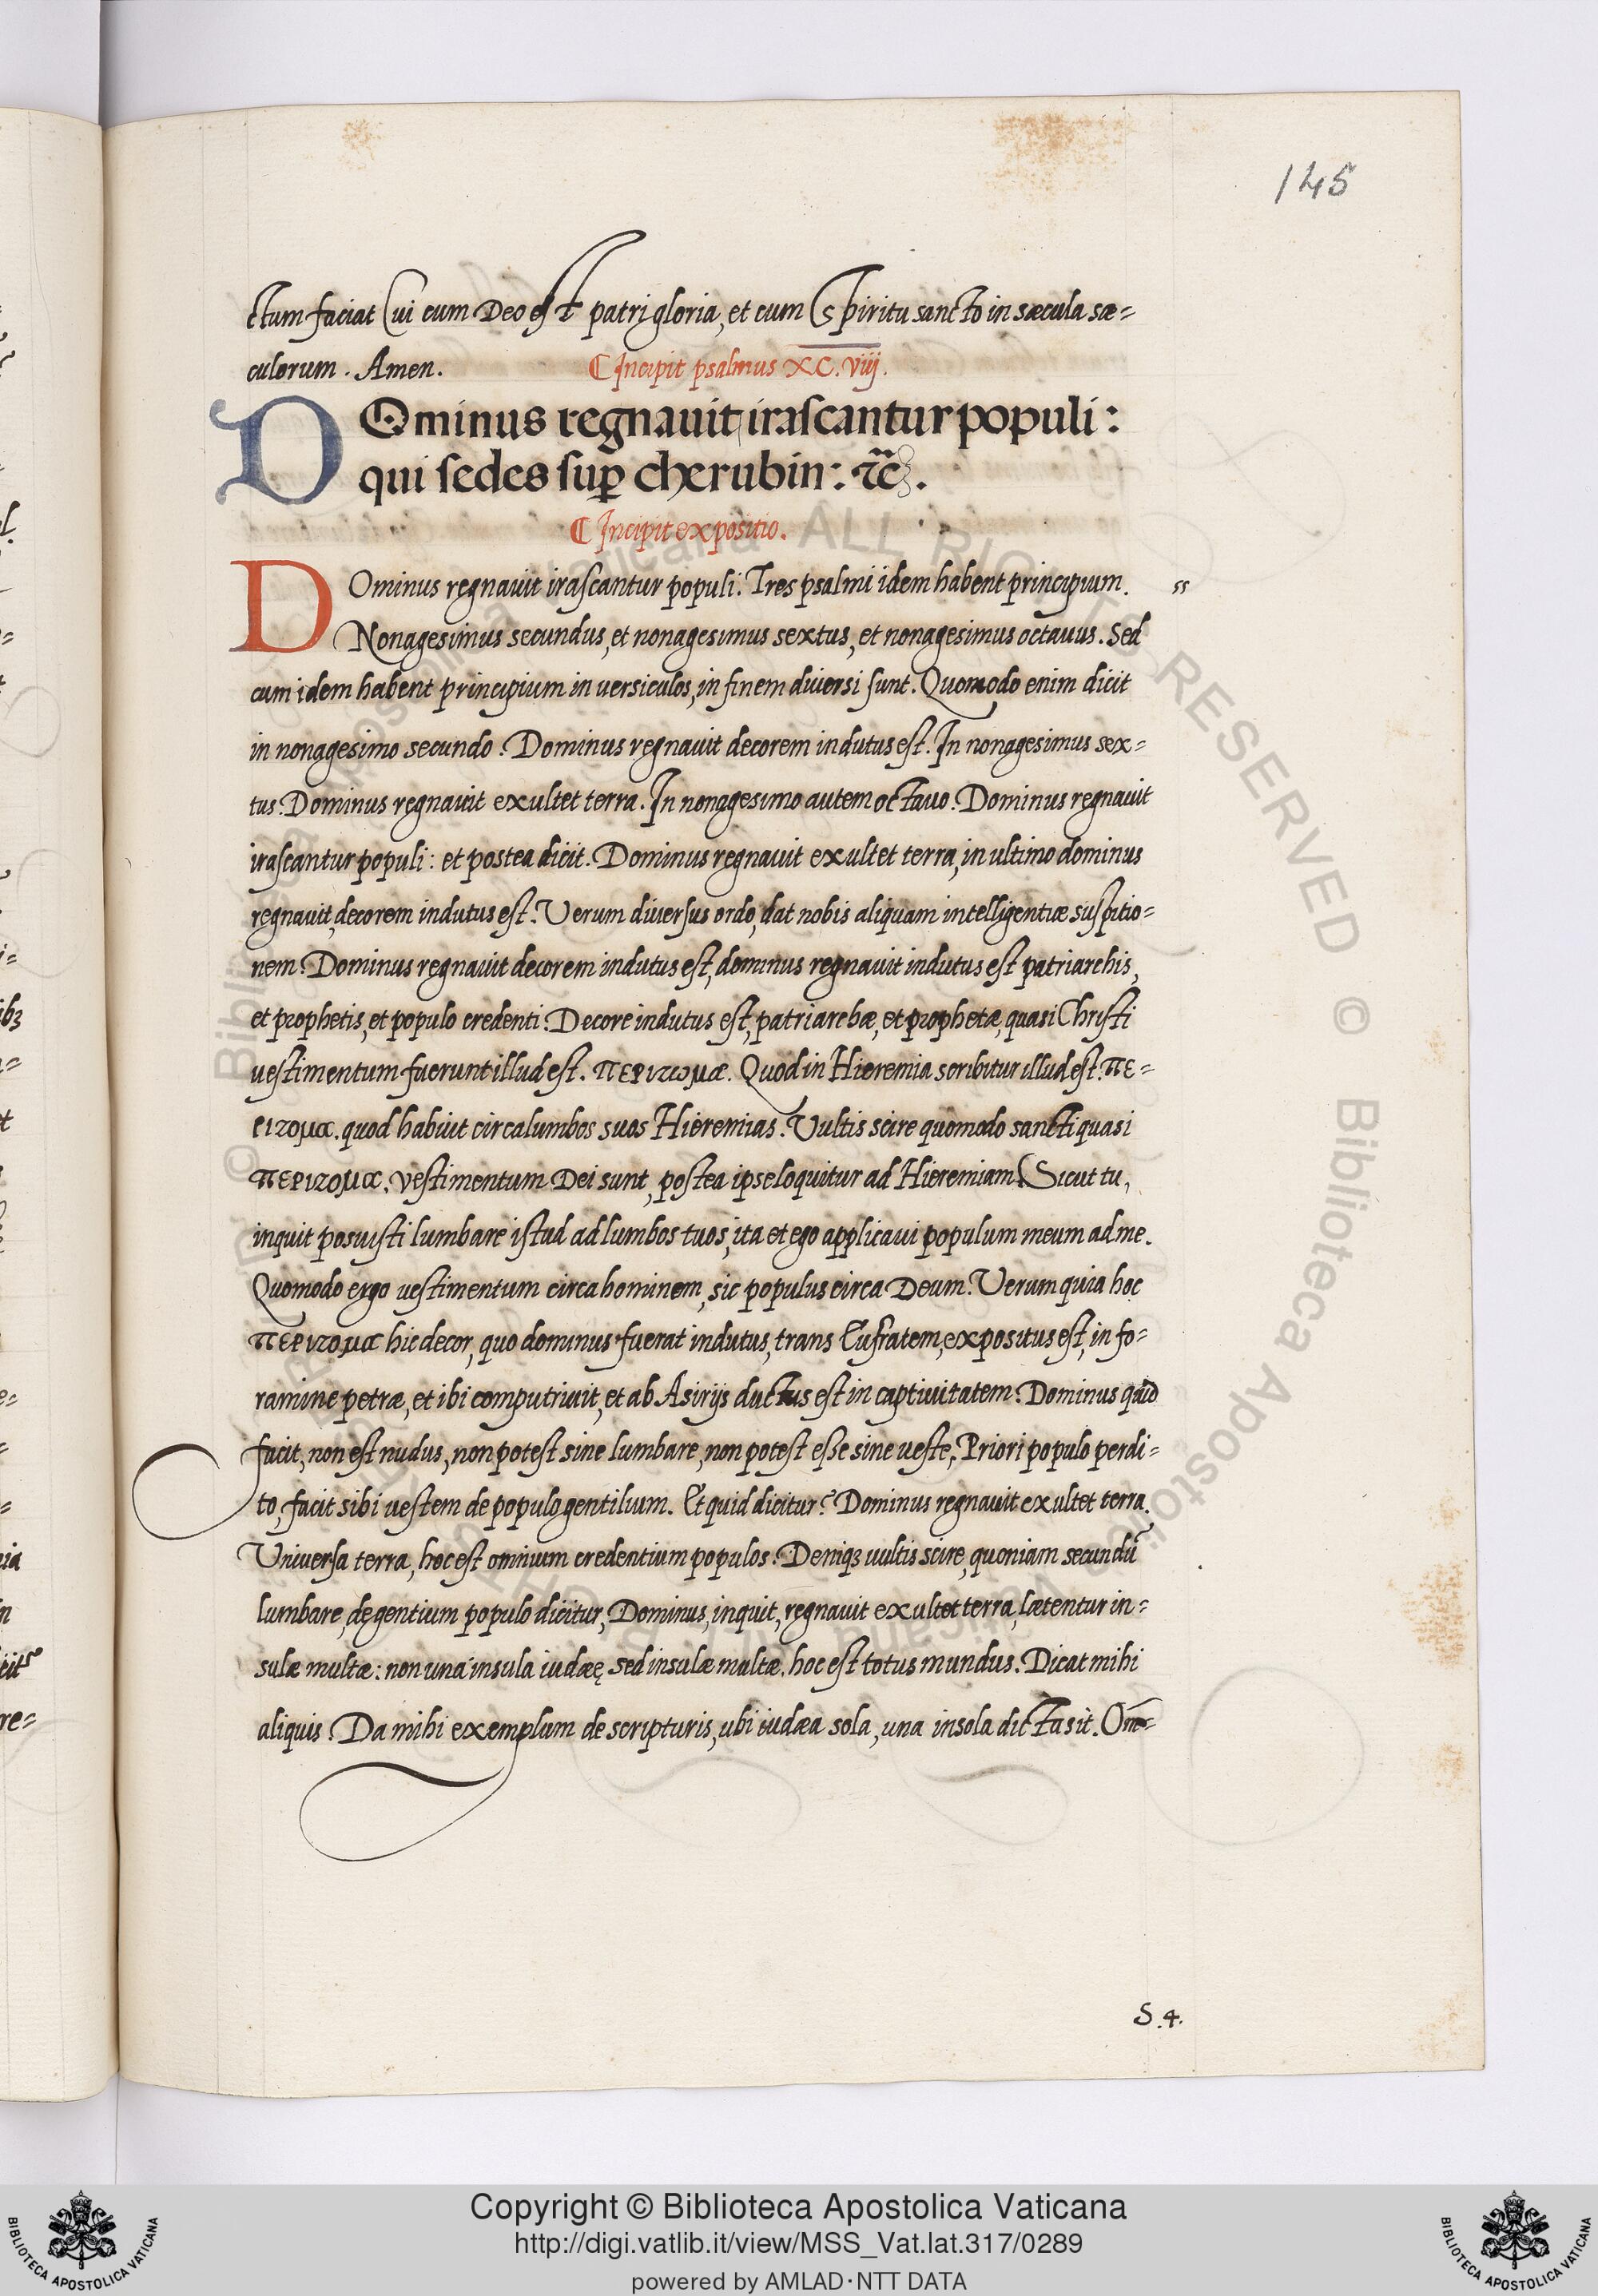 145
ctum faciat Cui cum Deo est patri gloria, et cum Spiritu sancto in sæcula sæ=
culorum. Amen. ¶ Incipit psalmus XC.viij.
DOminus regnauit irascantur populi:
qui sedes sup cherubin: ꝛc.
¶ Incipit expositio.
DOminus regnauit irascantur populi. Tres psalmi idem habent principium. ss
Nonagesimus secundus, et nonagesimus sextus, et nonagesimus octauus. Sed
cum idem habent principium in uersiculos, in finem diuersi sunt. Quomodo enim dicit
in nonagesimo secundo. Dominus regnauit decorem indutus est. In nonagesimus sex=
tus. Dominus regnauit exultet terra. In nonagesimo autem octauo. Dominus regnauit
irascantur populi: et postea dicit. Dominus regnauit exultet terra, in ultimo dominus
regnauit, decorem indutus est. Uerum diuersus ordo, dat nobis aliquam intelligentiæ suspitio=
nem. Dominus regnauit decorem indutus est, dominus regnauit indutus est patriarchis,
et prophetis, et populo credenti. Decore indutus est, patriarchæ, et prophetæ, quasi Christi
uestimentum fuerunt illud est. περιτωμα. Quod in Hieremia scribitur illud est. πε=
ριτομα. quod habuit circa lumbos suos Hieremias. Uultis scire quomodo sancti quasi
περιτομα. vestimentum Dei sunt, postea ipse loquitur ad Hieremiam Sicut tu,
inquit posuisti lumbare istud ad lumbos tuos, ita et ego applicaui populum meum ad me.
Quomodo ergo uestimentum circa hominem, sic populus circa Deum. Uerum quia hoc
περιτομα hic decor, quo dominus fuerat indutus, trans Eufratem, expositus est, in fo=
ramine petræ, et ibi computriuit, et ab Asirijs ductus est in captiuitatem. Dominus quid
facit, non est nudus, non potest sine lumbare, non potest esse sine ueste. Priori populo perdi=
to, facit sibi uestem de populo gentilium. Et quid dicitur? Dominus regnauit exultet terra.
Uniuersa terra, hoc est omnium credentium populos. Deniqꝫ uultis scire, quoniam secundũ
lumbare, de gentium populo dicitur, Dominus, inquit, regnauit exultet terra, lætentur in=
sulæ multæ: non una insula iudæę sed insulæ multæ. hoc est totus mundus. Dicat mihi
aliquis. Da mihi exemplum de scripturis, ubi iudæa sola, una insola dicta sit.
S.4.
© Biblioteca Apostolica Vaticana ALL RIGHTS RESERVED © Biblioteca Apostolica Vaticana
Copyright © Biblioteca Apostolica Vaticana
http://digi.vatlib.it/view/MSS_Vat.lat.317/0289
powered by AMLAD·NTT DATA
BIBLIOTECA APOSTOLICA VATICANA
BIBLIOTECA APOSTOLICA VATICANA